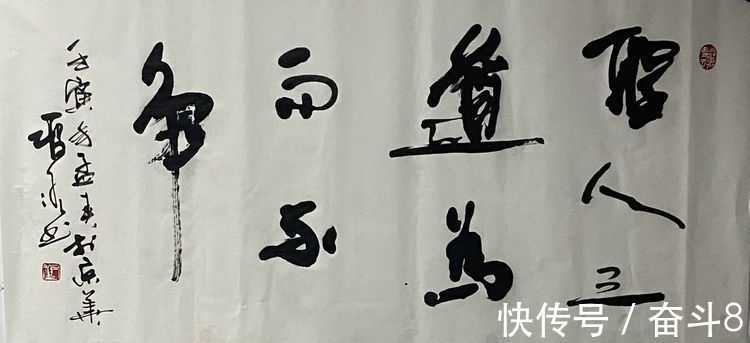 聖人之
道為
而不
争
壬寅年孟春於京華
书
快传号 / 奋斗8